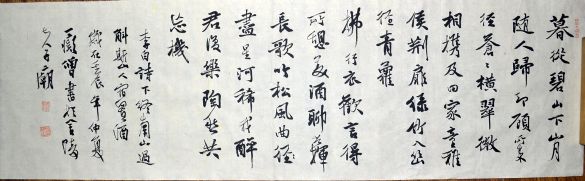 暮從碧山下山月
隨人歸卻顧所來
徑蒼蒼橫翠微
相攜及田家童稚
侯荊扉綠竹入幽
徑青蘿
拂行衣歡言得
所憩美酒聊共揮
長歌吟松風曲徑
盡星河稀我醉
君復樂陶然共
忘機
李白詩下終南山過
斛斯山人宿置酒
歲在壬辰年仲夏
曾書於金陵